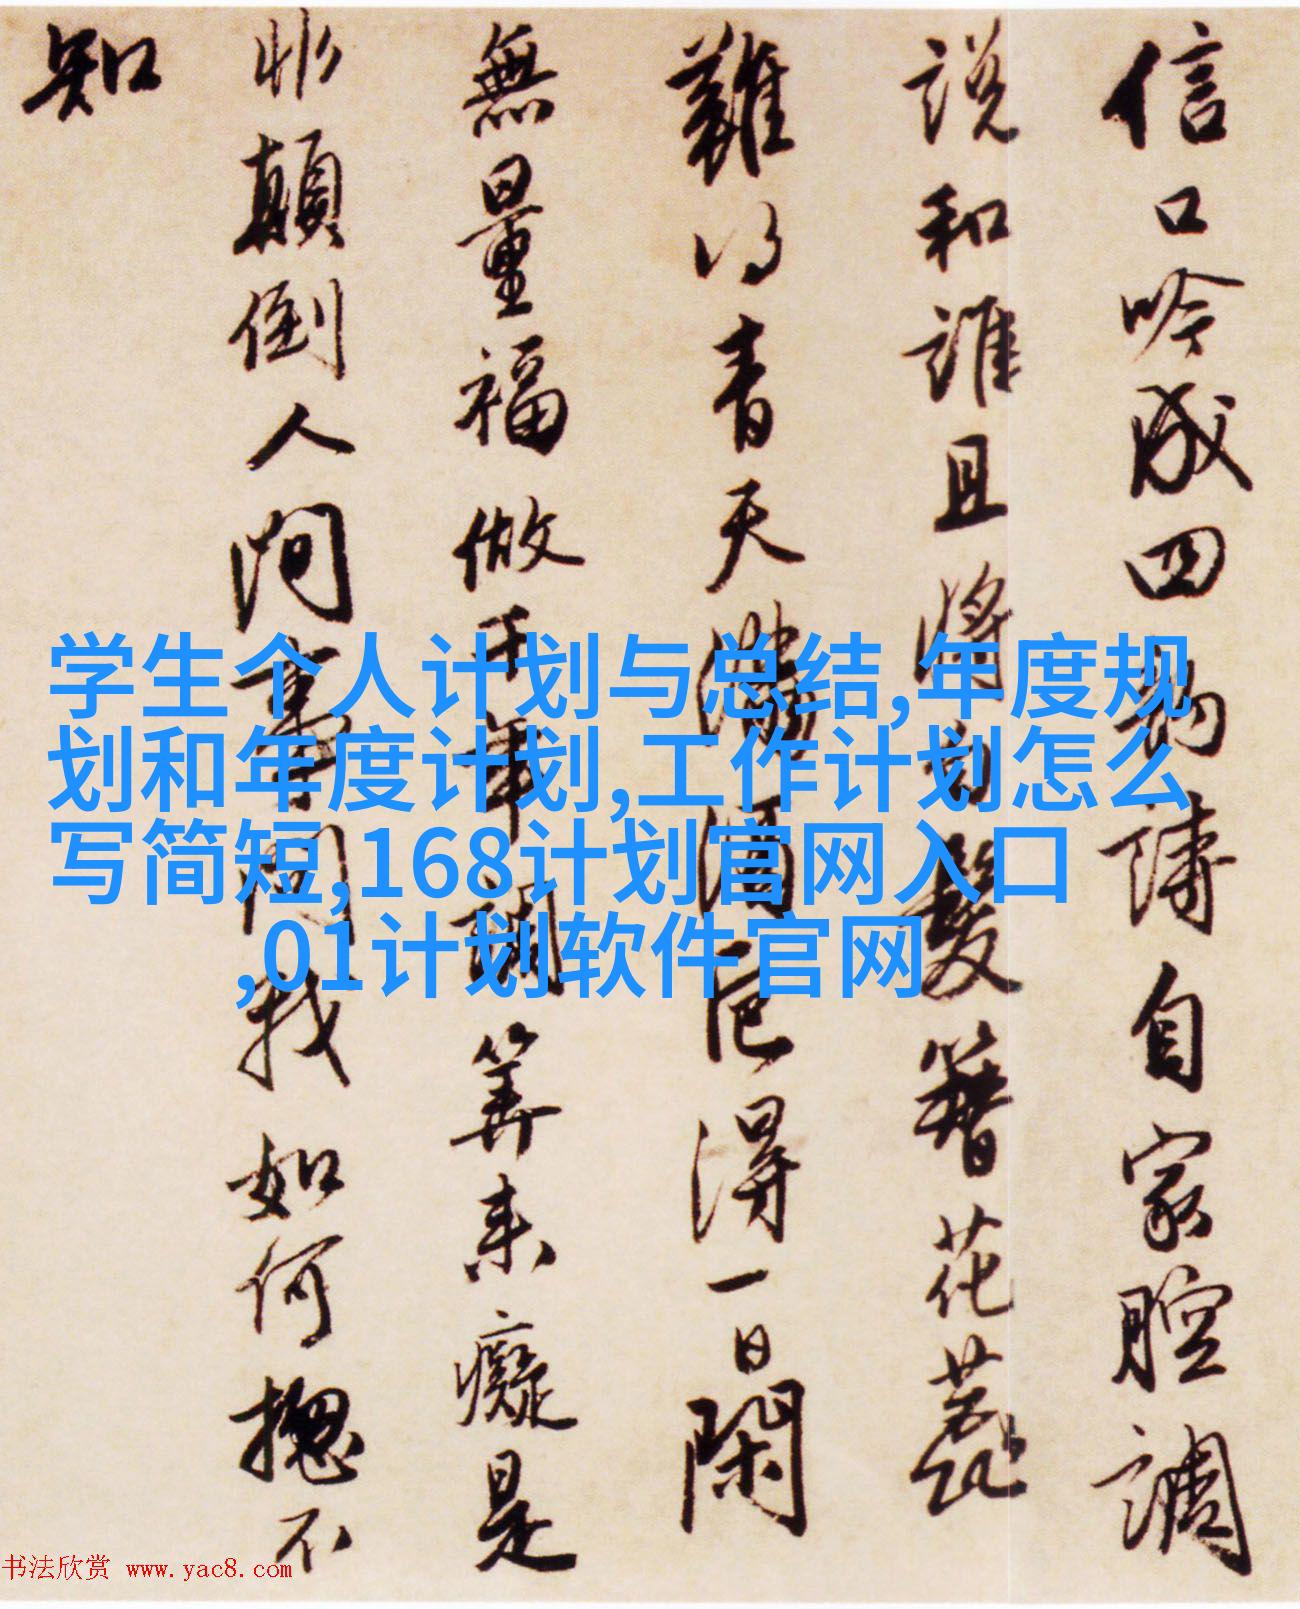 信口吟成四韻詩自家腔調
說和誰且將白髮簪花蕊
難得青天滿酒卮得一日閑
無量福做千年調算來癡是
非顛倒人間事問我如何揔不
知
学生个人计划与总结,年度规
划和年度计划,工作计划怎么
写简短,168计划官网入口
,01计划软件官网
书法欣赏 www.yac8.com